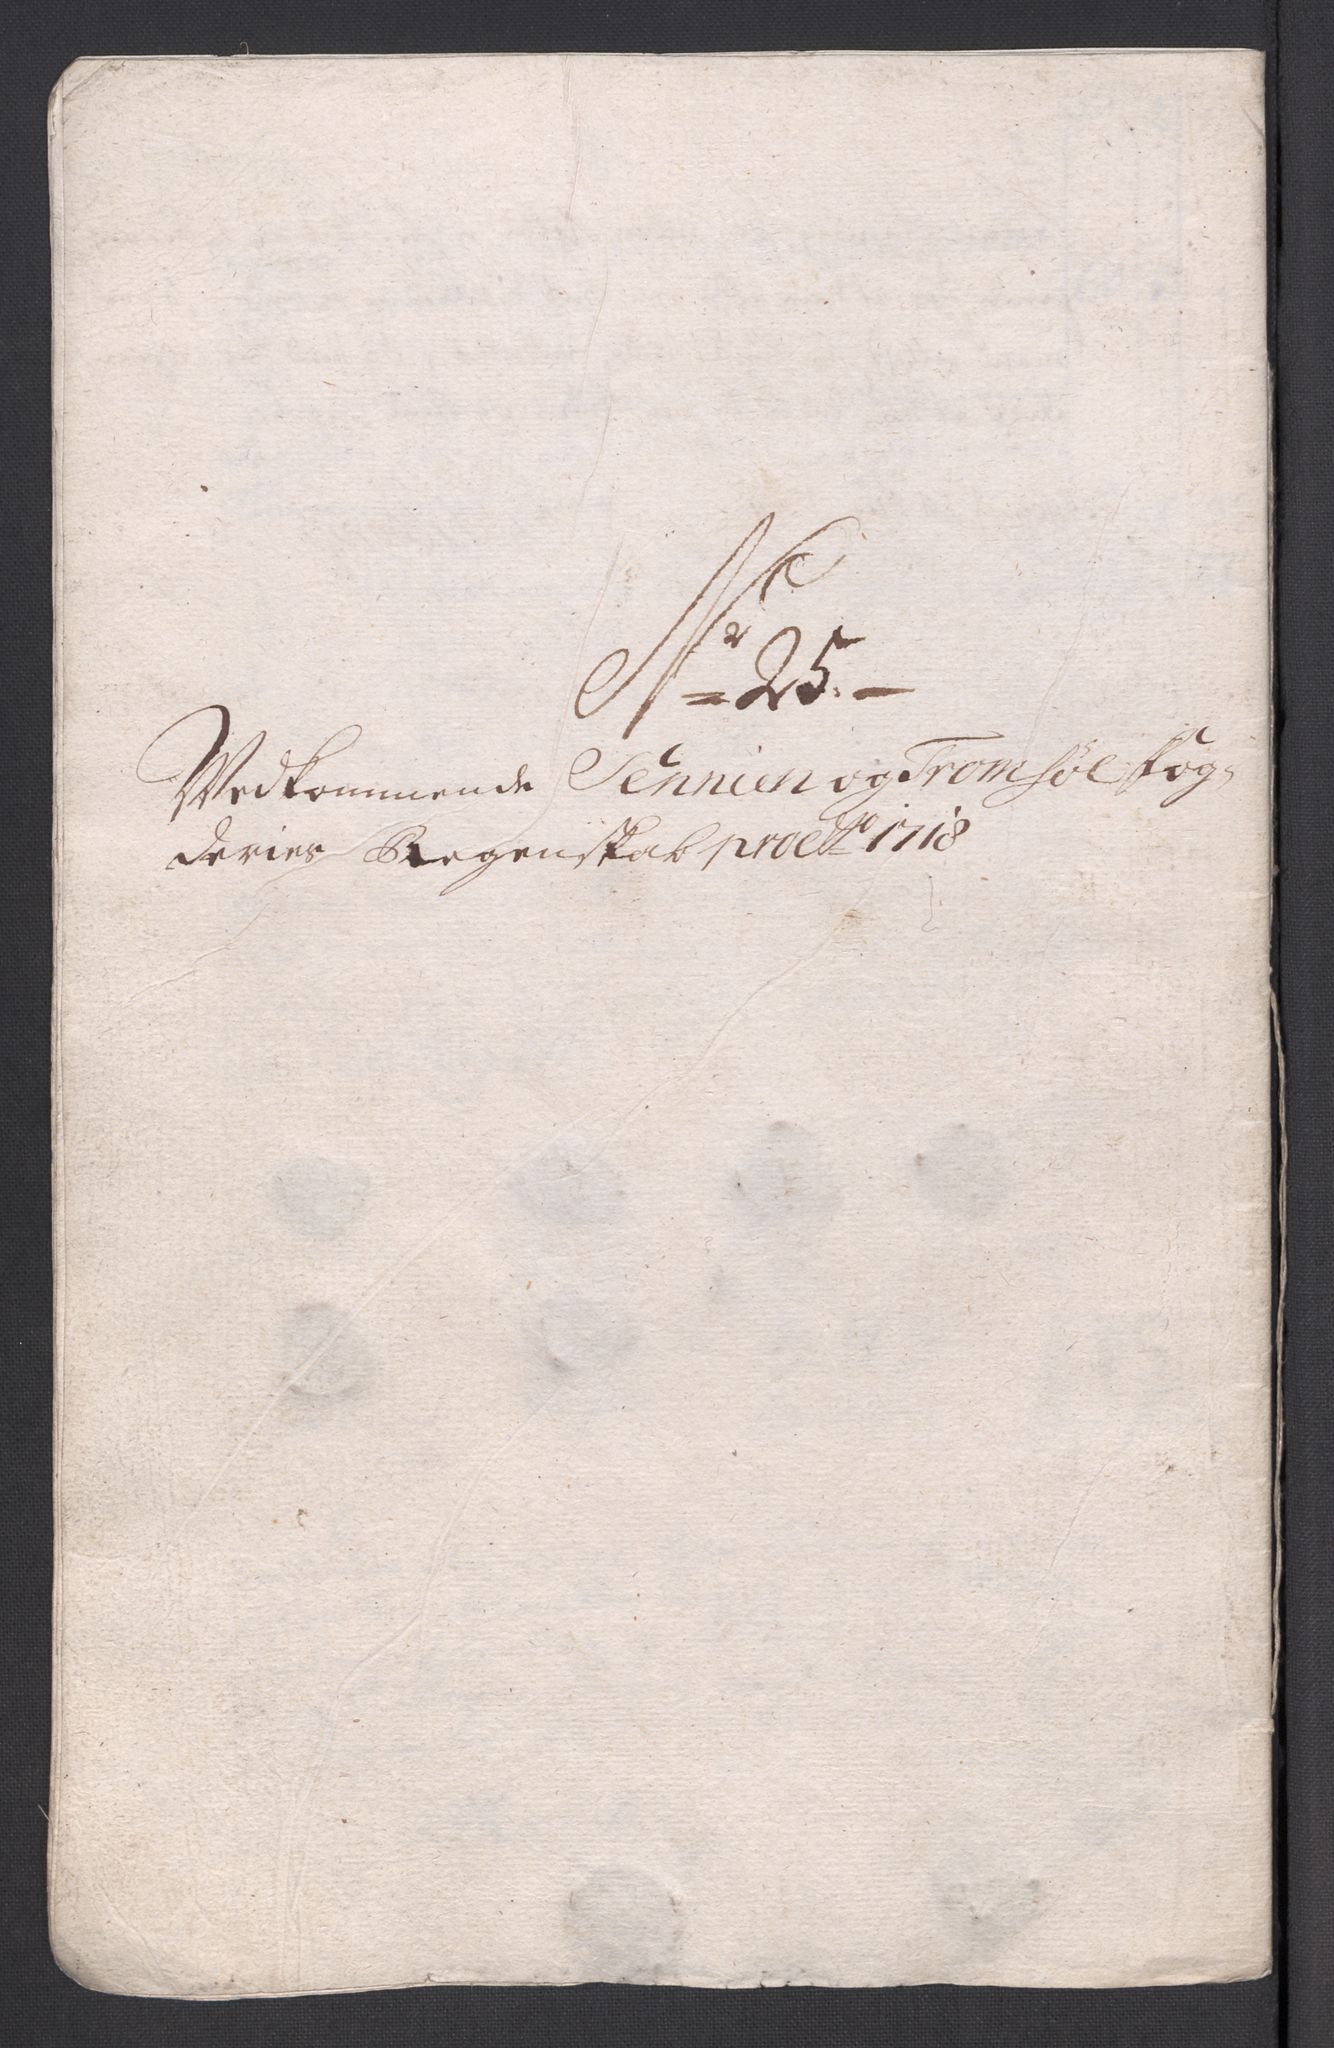 Nr 25.
Wedkommende Sennien og Tromsøe fog-
deries Regenskab pro Ao 1718